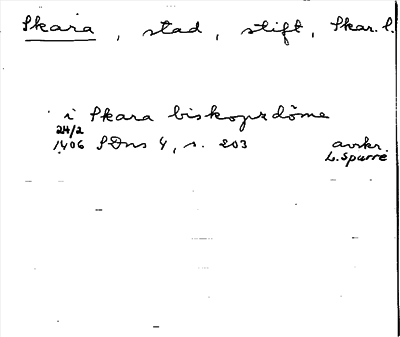 Skara, stad, stift, Skar. l.
i Skara biskopsdöme
24/2
1406 SDns 4, s. 203 avskr.
L. Sparre